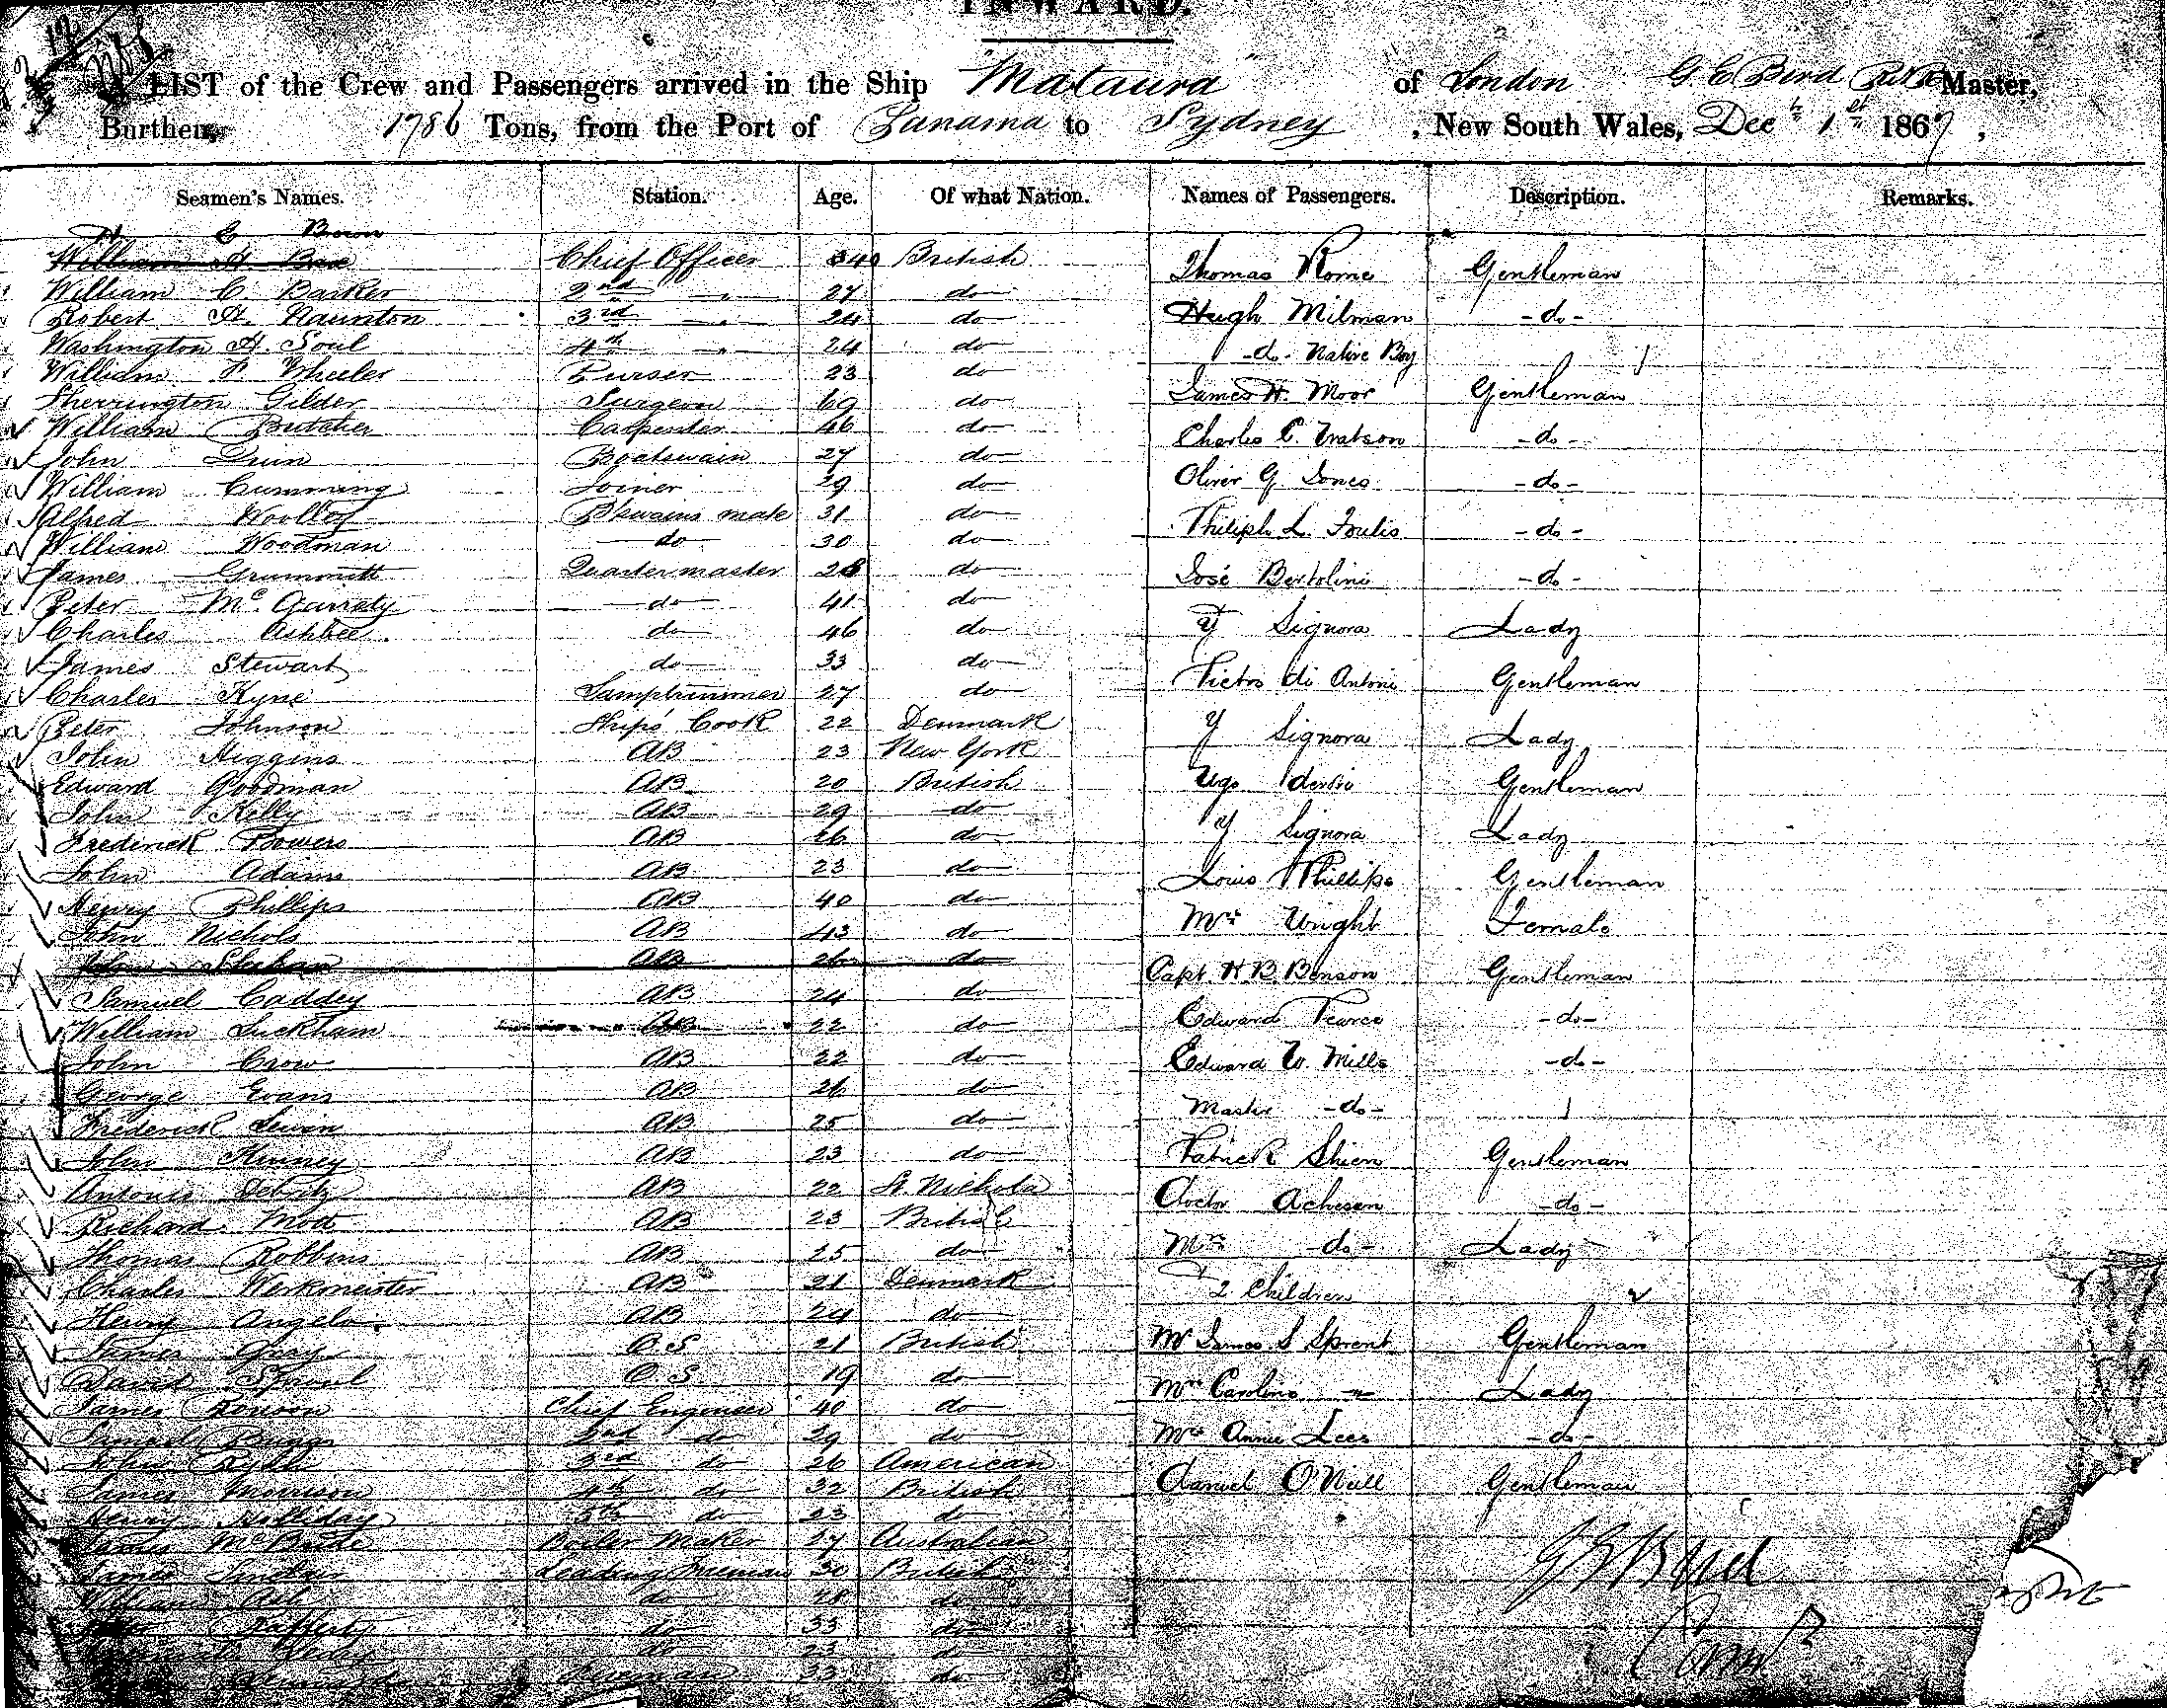 INWARD.
A LIST of the Crew and Passengers arrived in the Ship "Mataura" of London G. E. Bird R.N.R. Master,
Burthen, 1786 Tons, from the Port of Panama to Sydney, New South Wales, Decr 1st 1867,
Seamen's Names. Station. Age. Of what Nation. Names of Passengers. Description. Remarks.
Chief Officer 40 British
William C. Barker 2nd " 27 do
Robert H. Naunton 3rd " 24 do
Washington H. Soul 4th " 24 do
William F. Wheeler Purser 23 do
Sherrington Gilder Surgeon 69 do
William Butcher Carpenter 46 do
John Dunn Boatswain 27 do
William Cumming Joiner 29 do
Alfred Woolloy B'swains mate 31 do
William Woodman do 30 do
James Grummitt Quartermaster do
Peter McGarrety do 41 do
Charles Ashbee do 46 do
James Stewart do 33 do
Charles Kyne Lamptrimmer 27 do
Peter Johnson Ships' Cook 22 Denmark
John Higgins AB 23 New York
Edward Goodman AB 20 British
John Kelly AB 29 do
Frederick Bowers AB 26 do
John Adams AB 23 do
Henry Phillips AB 40 do
John Nichols AB 43 do
John Sheehan AB 26 do
Samuel Caddey AB 24 do
William Luckham AB 22 do
John Crow AB 22 do
George Evans AB 26 do
Frederick AB 25 do
John Kinney AB 23 do
AB 22 St. Nichola
Richard Mott AB 23 British
Thomas Robbins AB 25 do
Charles Werkmeister AB 21 Denmark
Henry Angelo AB 24 do
O.S 21 British
David Sproul O.S 19 do
James Rowson Chief Engineer 40 do
2nd do 29 do
John 3rd do 26 American
James Morrison 4th do 32 British
Henry Holliday 5th do 23 do
James McBride Boiler Maker 27 Australian
James Sinclair Leading Fireman 30 British
William Ash do 28 do
Rafferty do 33 do
do 23 do
Fireman 33 do
Thomas Rome Gentleman
Hugh Milman -do-
-do- Native Boy 1
James H. Moor Gentleman
Charles C. Watson -do-
Oliver G. Jones -do-
Philiph L. Foulis -do-
José Bertolini -do-
Y Signora Lady
Victor di Antoni Gentleman
Y Signora Lady
Ugo Devoti Gentleman
Y Signora Lady
Louis Phillips Gentleman
Mrs Wright Female
Capt. H. B. Benson Gentleman
Edward Pearce -do-
Edward W. Mills -do-
Master -do- 1
Patrick Shien Gentleman
Doctor Acheson -do-
Mrs -do- Lady
2 Children 2
Mr James S Sprent Gentleman
Mrs Caroline " Lady
Mrs Annie Lees -do-
Daniel O'Neill Gentleman
G E Bird
Comr